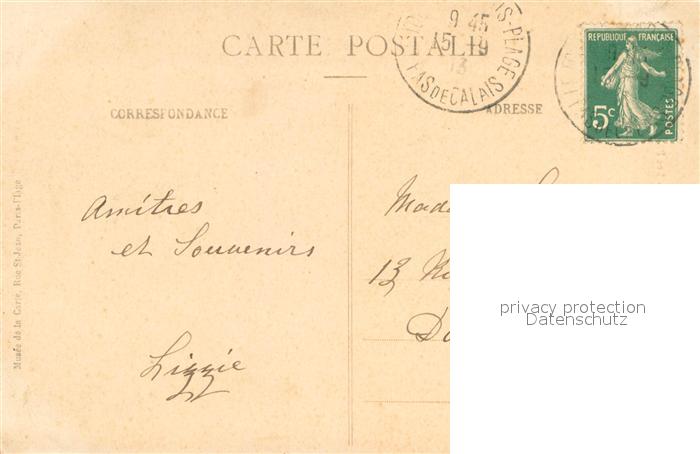 CARTE POSTALE
9 45
15 9
13
IS-PLAGE
PAS DE CALAIS
REPUBLIQUE FRANÇAISE
5c
POSTES
CORRESPONDANCE
ADRESSE
Amitiés
et Souvenirs
Lizzie
Mada
13 Ru
Do
privacy protection
Datenschutz
Musée de la Carte, Rue St-Jean, Paris-Plage